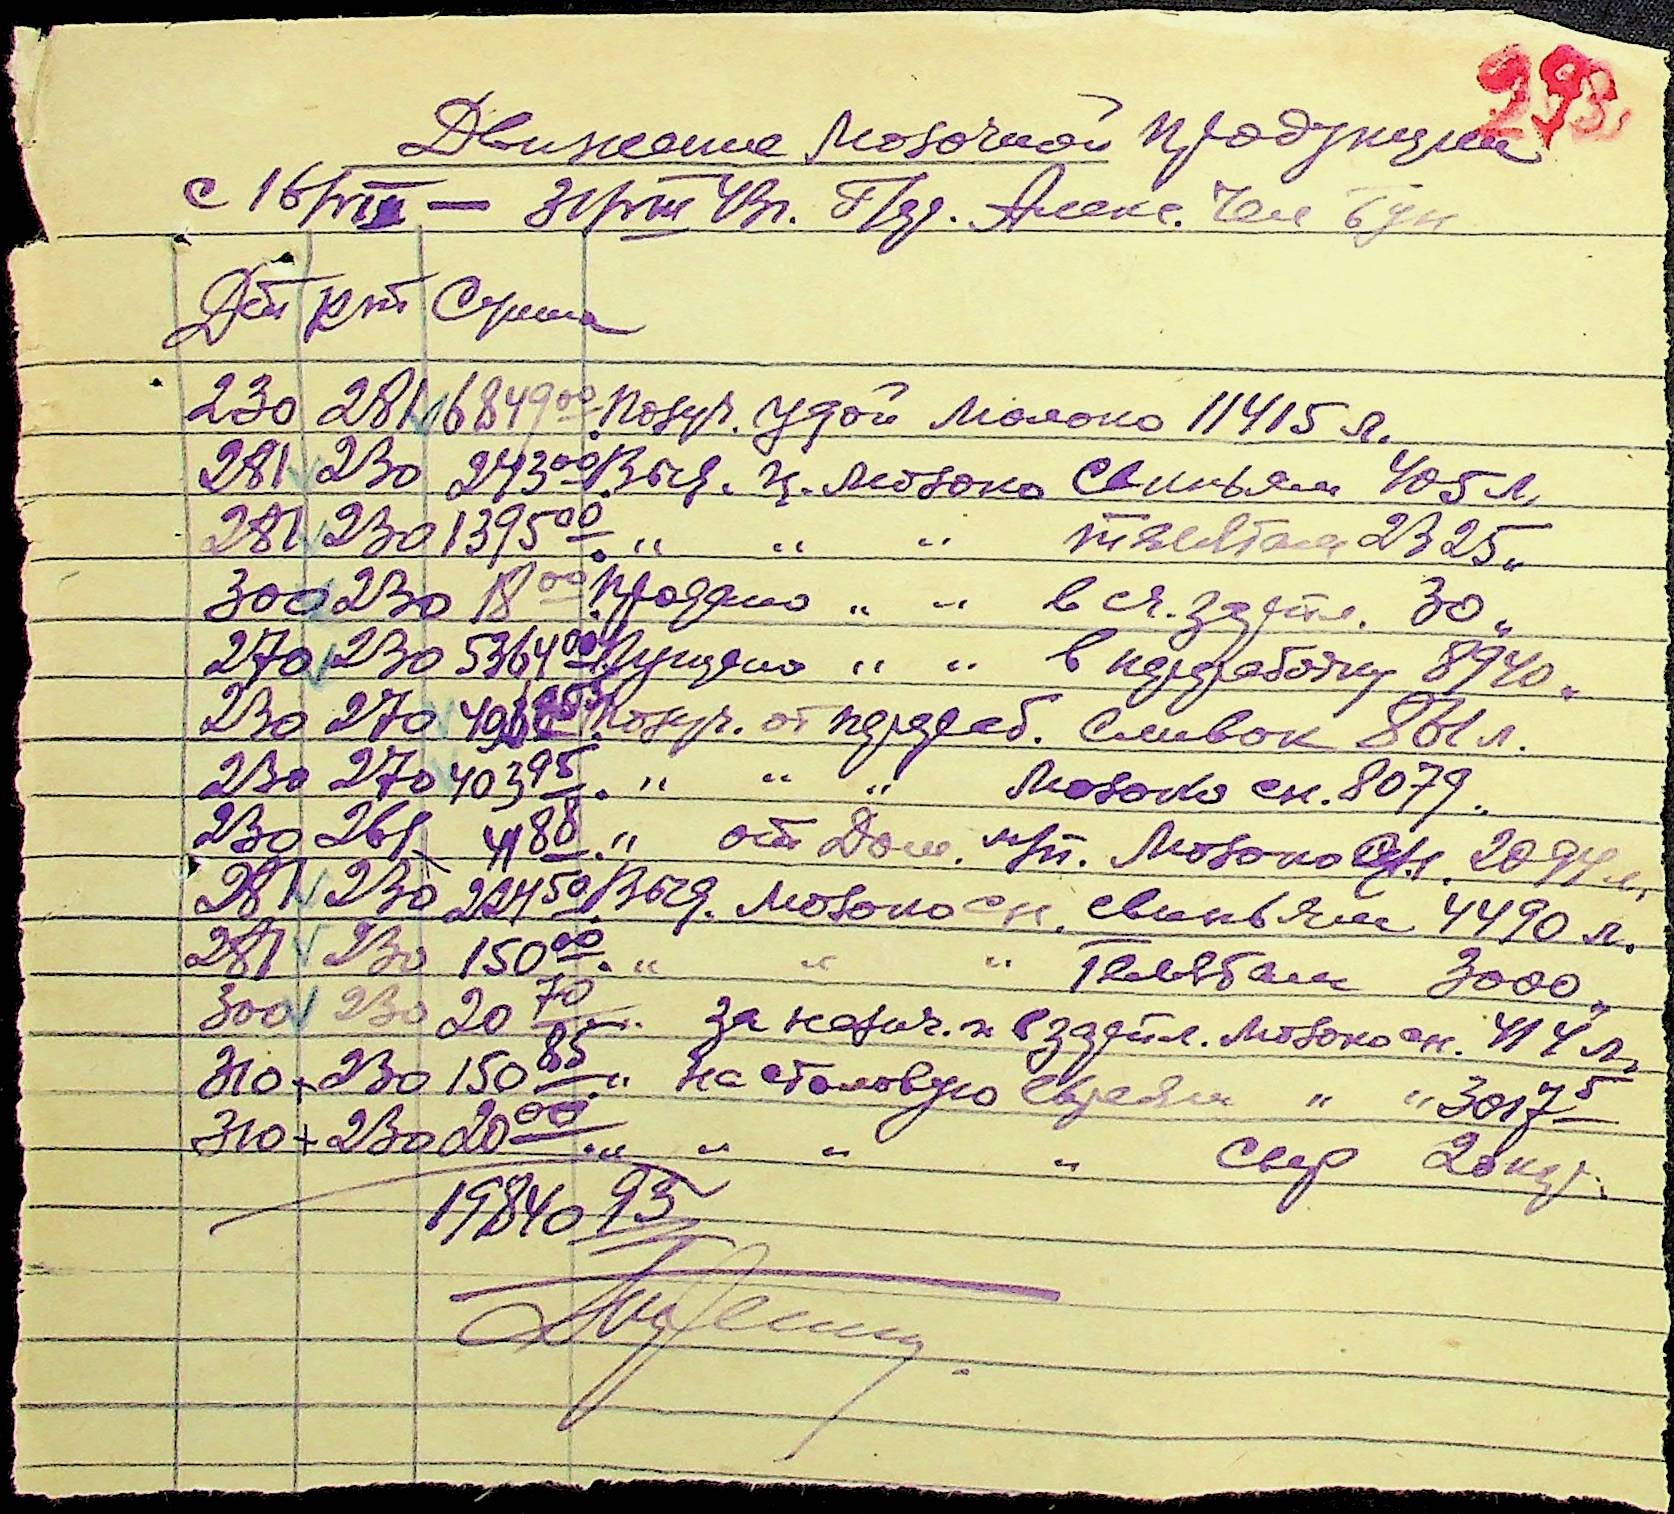 293.
Движение молочной продукции
с 16/VIII — 31/VIII 43 г. Алекс.
Дт Кт Сумма
230 281 6849 00 Получ. удой молоко 11415 л.
281 230 243 00 Выд. ц. молоко свиньям 405 л.
281 230 1395 00 " " " телятам 2325 "
300 230 18 00 Продано " " в сч. 30 "
270 230 5364 00 Пущено " " в переработку 8940 "
230 270 Получ. от перераб. сливок 861 л.
230 270 403 95 " " " молоко сн. 8079 "
230 261 41 88 " от молоко сн. 2094 л.
281 230 224 50 Выд. молоко сн. свиньям 4490 л.
281 230 150 00 " " " телятам 3000 "
300 230 20 70 " за наличн. молоко сн. 414 л.
310 + 230 150 85 " на столовую " " 3017 5
310 + 230 20 00 " " " " сыр 20 кгр.
19840 93